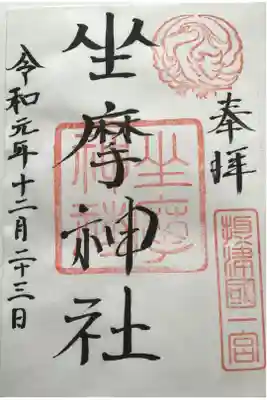 奉拝
摂津國一宮
坐摩神社
坐摩神社
令和元年十二月二十三日